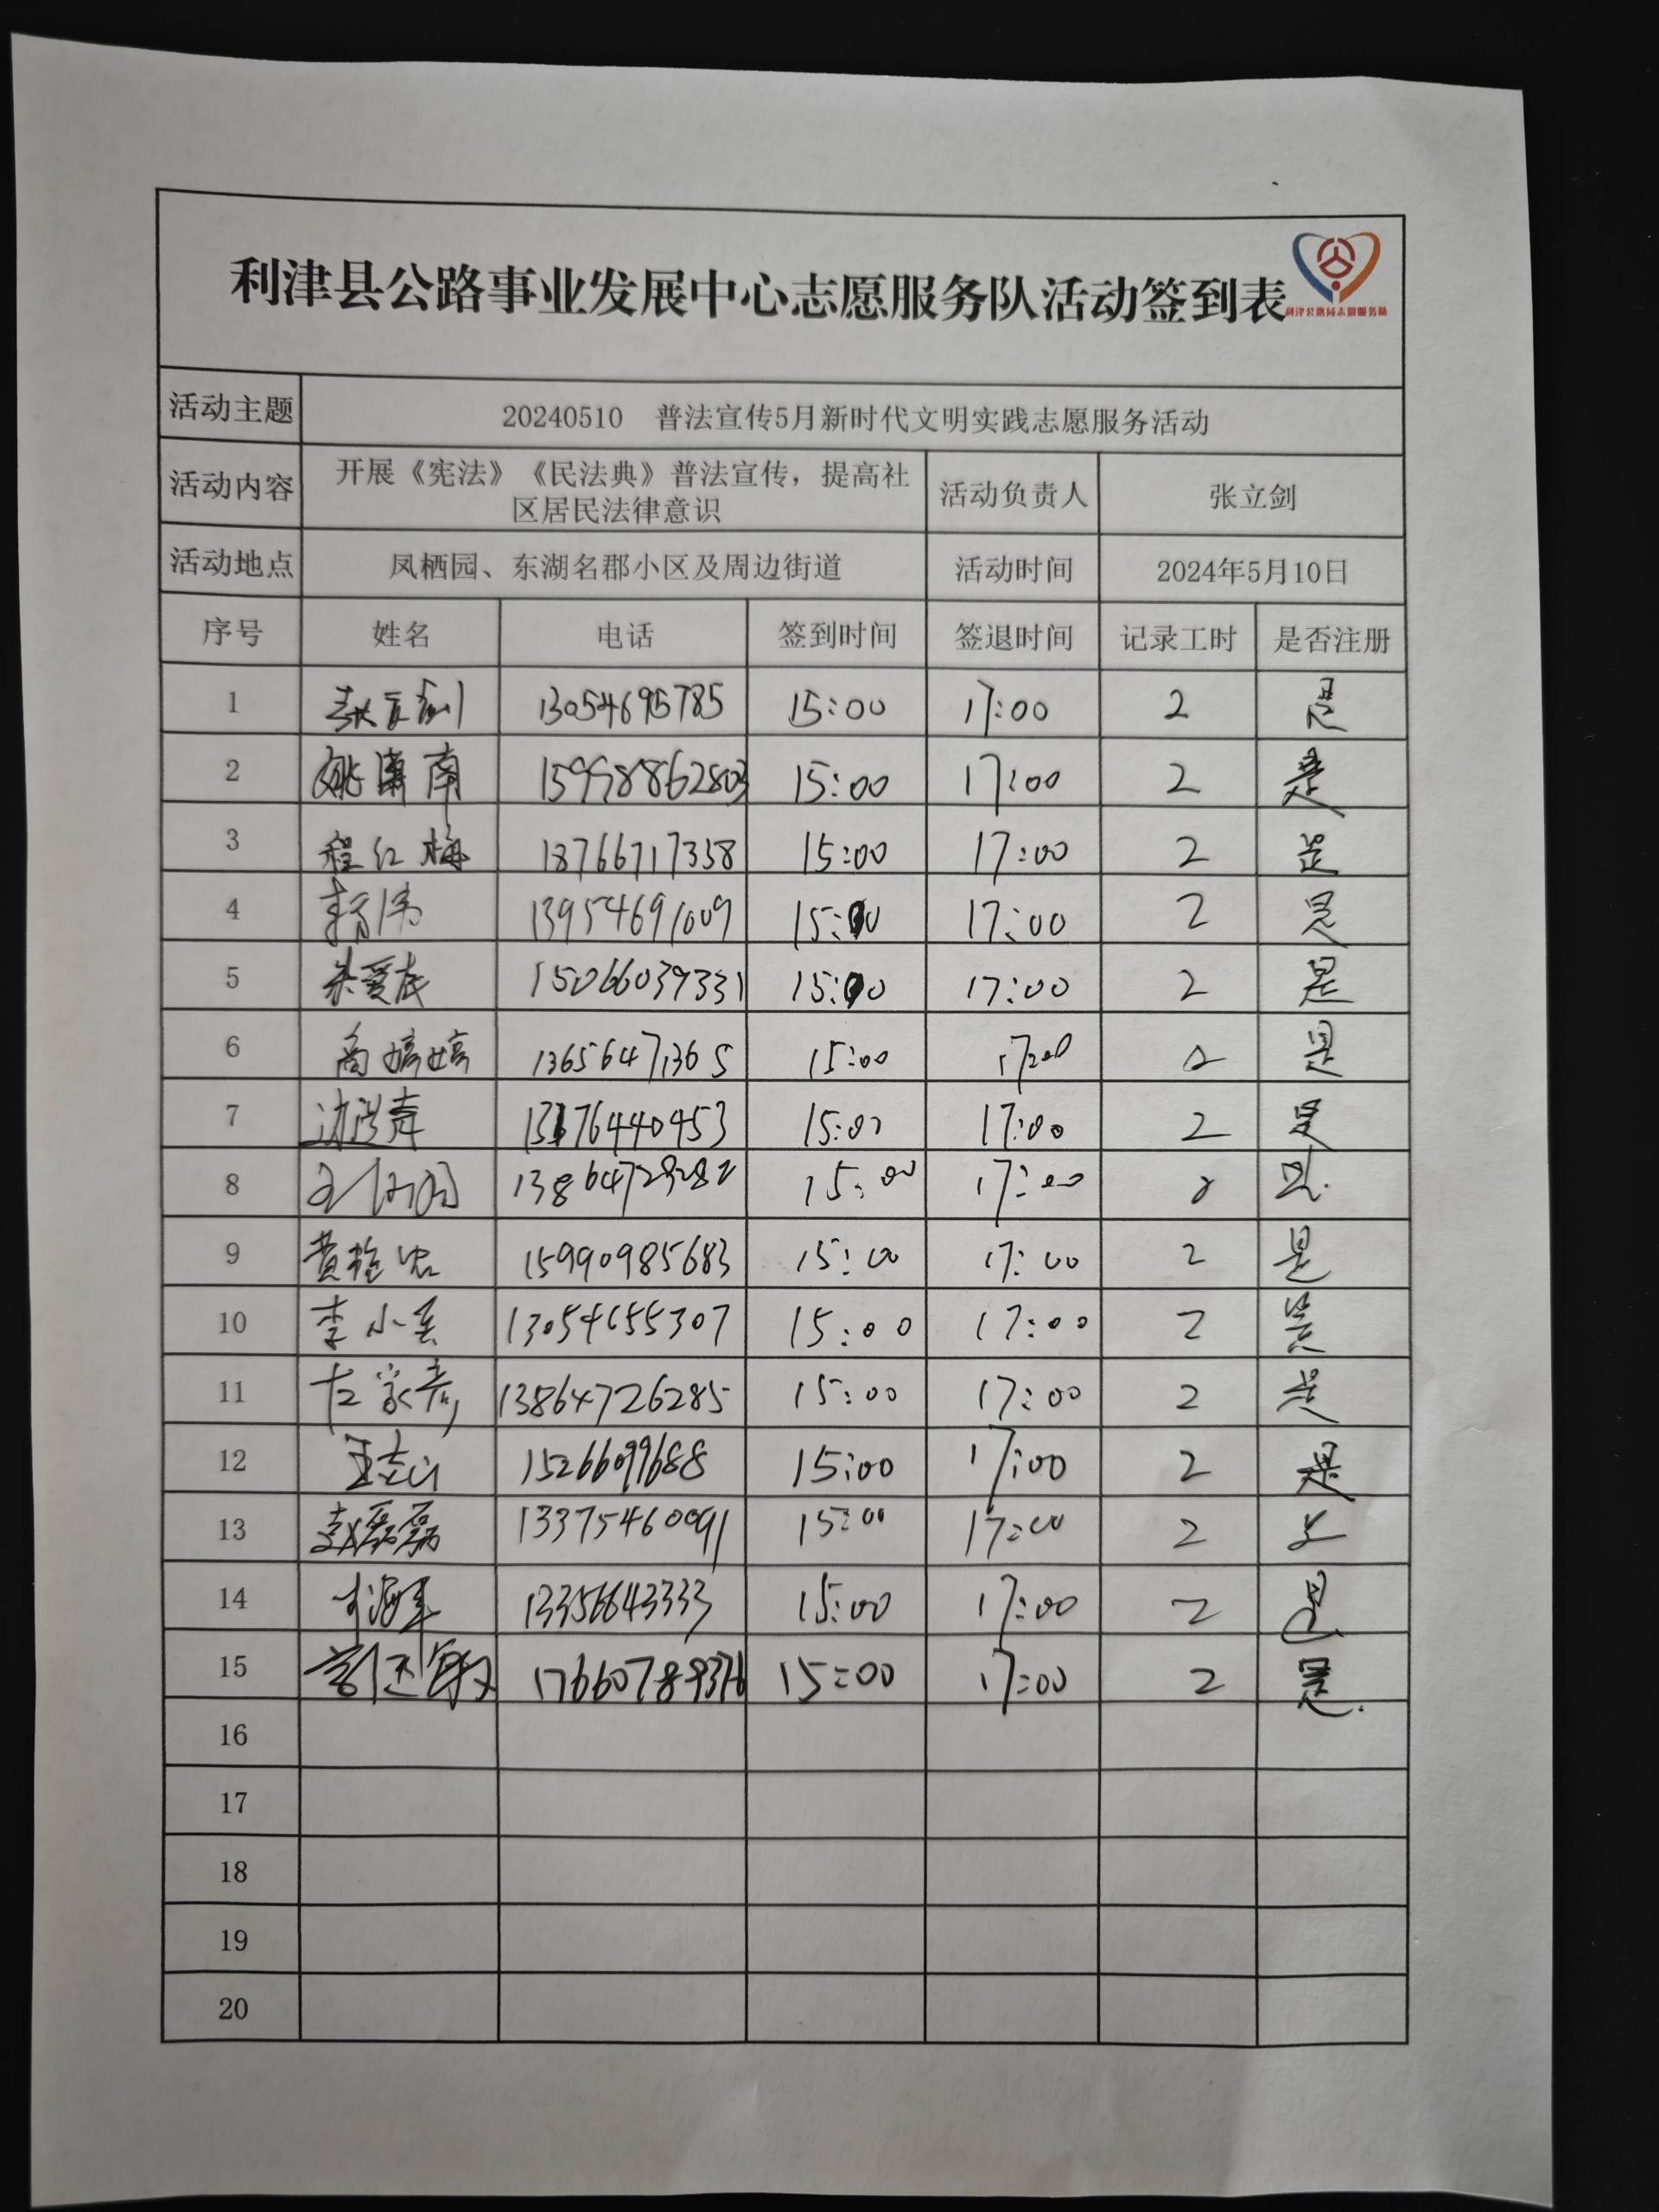 利津县公路事业发展中心志愿服务队活动签到表
利津公路局志愿服务队
活动主题 20240510 普法宣传5月新时代文明实践志愿服务活动
活动内容 开展《宪法》《民法典》普法宣传，提高社区居民法律意识 活动负责人 张立剑
活动地点 凤栖园、东湖名郡小区及周边街道 活动时间 2024年5月10日
序号 姓名 电话 签到时间 签退时间 记录工时 是否注册
1 13054695785 15:00 17:00 2 是
2 姚潇南 15998862803 15:00 17:00 2 是
3 程红梅 18766717358 15:00 17:00 2 是
4 13954691009 15:00 17:00 2 是
5 15066039331 15:00 17:00 2 是
6 商婷婷 13656471365 15:00 17:00 2 是
7 13176440453 15:00 17:00 2 是
8 15:00 17:00 2 是
9 15990985683 15:00 17:00 2 是
10 13054655307 15:00 17:00 2 是
11 13864726285 15:00 17:00 2 是
12 15266099688 15:00 17:00 2 是
13 赵磊磊 13375460091 15:00 17:00 2 是
14 13356643333 15:00 17:00 2 是
15 17660789376 15:00 17:00 2 是
16
17
18
19
20